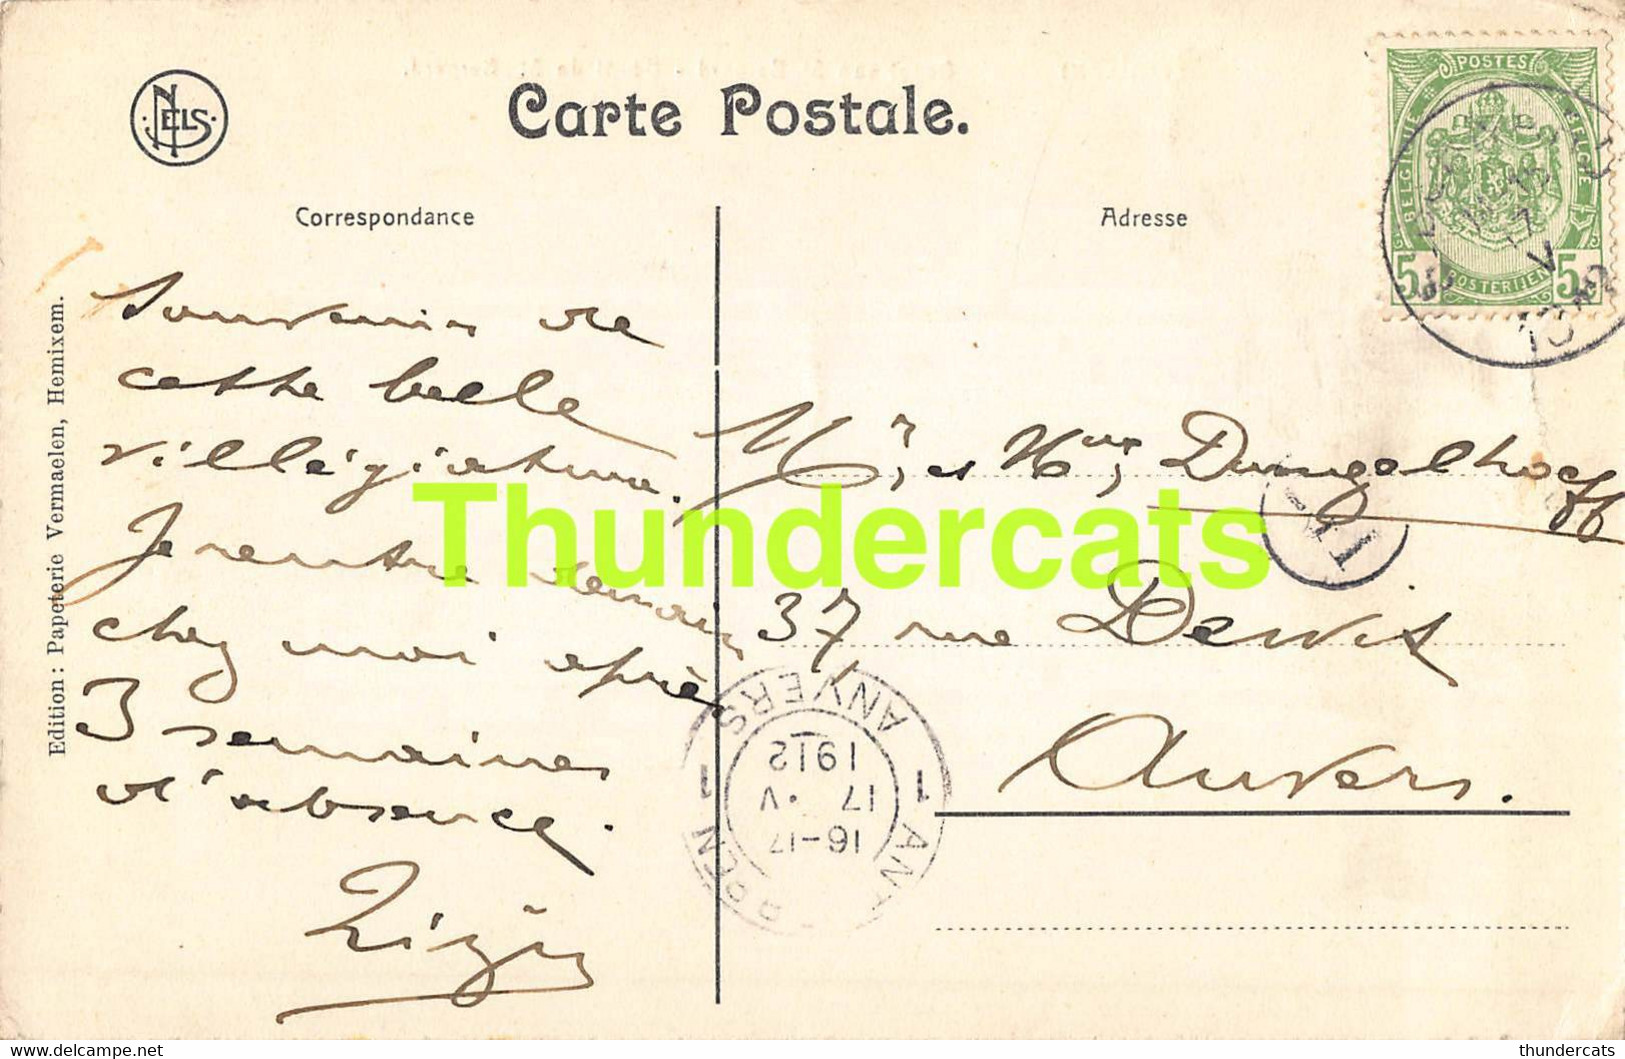 NELS
Carte Postale.
Correspondance
Adresse
POSTES
BELGIQUE
BELGIE
5 5
POSTERIJEN
Edition: Papeterie Vermaelen, Hemixem.
Souvenir de
cette belle
villégiature.
Je rentre demain
chez moi après
3 semaines
d'absence.
Mr et Mme Dungelhoeff
37, rue Dewit
Anvers.
ANVERS
1912
17 V
16-17
1 1
Thundercats
thundercats
delcampe.net